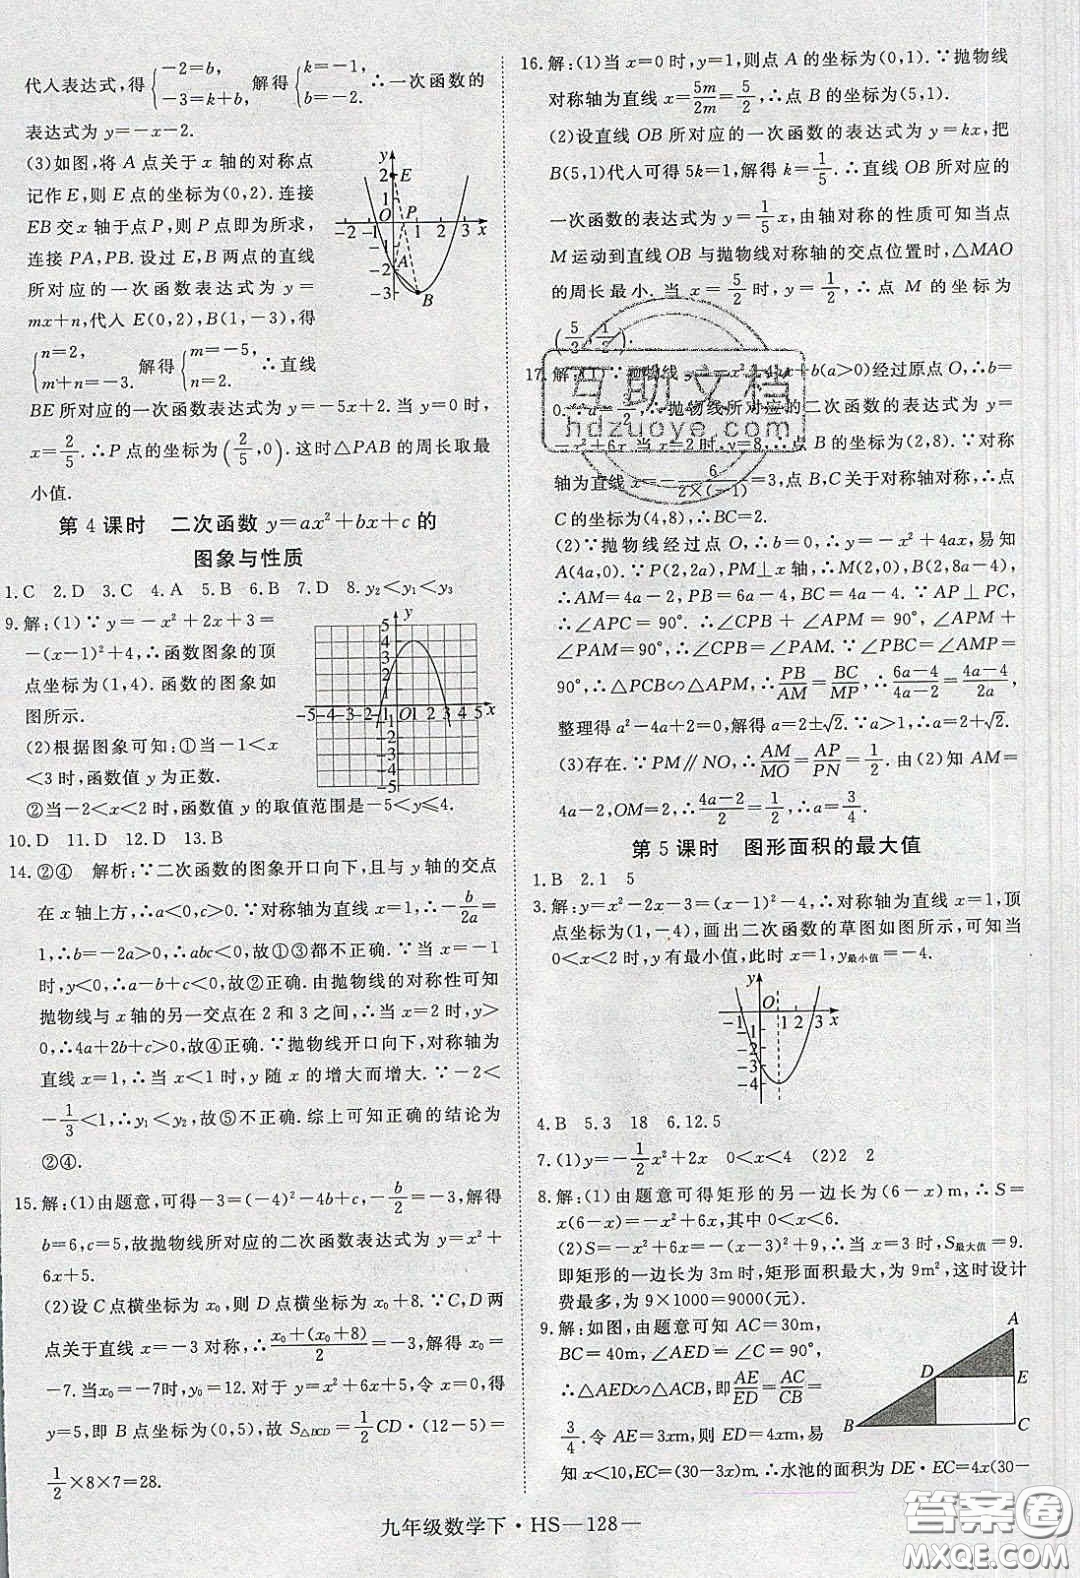 代人表达式,得{-2=b, -3=k+b, 解得{k=-1, b=-2. ∴一次函数的
表达式为 y=-x-2.
(3)如图,将 A 点关于 x 轴的对称点
记作 E,则 E 点的坐标为(0,2). 连接
EB 交 x 轴于点 P,则 P 点即为所求,
连接 PA,PB. 设过 E,B 两点的直线
所对应的一次函数表达式为 y=
mx+n,代人 E(0,2),B(1,-3),得
{n=2, m+n=-3. 解得{m=-5, n=2. ∴直线
BE 所对应的一次函数表达式为 y=-5x+2. 当 y=0 时,
x=2/5. ∴P 点的坐标为(2/5,0). 这时△PAB 的周长取最
小值.
第 4 课时 二次函数 y=ax²+bx+c 的
图象与性质
1.C 2.D 3.C 4.A 5.B 6.B 7.D 8.y₂<y₁<y₃
9.解:(1)∵y=-x²+2x+3=
-(x-1)²+4,∴函数图象的顶
点坐标为(1,4). 函数的图象如
图所示.
(2)根据图象可知:①当-1<x
<3 时,函数值 y 为正数.
②当-2<x<2 时,函数值 y 的取值范围是-5<y≤4.
10.D 11.D 12.D 13.B
14.②④ 解析:∵二次函数的图象开口向下,且与 y 轴的交点
在 x 轴上方,∴a<0,c>0. ∵对称轴为直线 x=1,∴-b/2a=
1,∴b=-2a>0,∴abc<0,故①③都不正确. ∵当 x=-1
时,y<0,∴a-b+c<0,故②正确. 由抛物线的对称性可知
抛物线与 x 轴的另一交点在 2 和 3 之间,∴当 x=2 时,y>
0,∴4a+2b+c>0,故④正确. ∵抛物线开口向下,对称轴为
直线 x=1,∴当 x<1 时,y 随 x 的增大而增大. ∵-2<
-1/3<1,∴y₁<y₂,故⑤不正确. 综上可知正确的结论为
②④.
15.解:(1)由题意,可得-3=(-4)²-4b+c,-b/2=-3,解得
b=6,c=5,故抛物线所对应的二次函数表达式为 y=x²+
6x+5.
(2)设 C 点横坐标为 x₀,则 D 点横坐标为 x₀+8. ∵C,D 两
点关于直线 x=-3 对称,∴(x₀+(x₀+8))/2=-3,解得 x₀=
-7. 当 x₀=-7 时,y₀=12. 对于 y=x²+6x+5,令 x=0,得
y=5,即 B 点坐标为(0,5),故 S△BCD=1/2CD·(12-5)=
1/2×8×7=28.
16.解:(1)当 x=0 时,y=1,则点 A 的坐标为(0,1). ∵抛物线
对称轴为直线 x=5m/2m=5/2,∴点 B 的坐标为(5,1).
(2)设直线 OB 所对应的一次函数的表达式为 y=kx,把
B(5,1)代人可得 5k=1,解得 k=1/5. ∴直线 OB 所对应的
一次函数的表达式为 y=1/5x,由轴对称的性质可知当点
M 运动到直线 OB 与抛物线对称轴的交点位置时,△MAO
的周长最小. 当 x=5/2 时,y=1/2,∴点 M 的坐标为
(5/2,1/2).
17.解:(1)∵抛物线 y=-x²+4ax+b(a>0)经过原点 O,∴b=
0. ∵a=3/2,∴抛物线所对应的二次函数的表达式为 y=
-x²+6x. 当 x=2 时,y=8,∴点 B 的坐标为(2,8). ∵对称
轴为直线 x=-6/(2×(-1))=3,点 B,C 关于对称轴对称,∴点
C 的坐标为(4,8),∴BC=2.
(2)∵抛物线经过点 O,∴b=0,∴y=-x²+4ax,易知
A(4a,0). ∵P(2,2a),PM⊥x 轴,∴M(2,0),B(2,8a-4),
∴AM=4a-2,PB=6a-4,BC=4a-4. ∵AP⊥PC,
∴∠APC=90°. ∵∠CPB+∠APM=90°,∠APM+
∠PAM=90°,∴∠CPB=∠PAM. ∵∠PBC=∠AMP=
90°,∴△PCB∽△APM,∴PB/AM=BC/MP,∴(6a-4)/(4a-2)=(4a-4)/2a,
整理得 a²-4a+2=0,解得 a=2±√2. ∵a>1,∴a=2+√2.
(3)存在. ∵PM∥NO,∴AM/MO=AP/PN=1/2. 由(2)知 AM=
4a-2,OM=2,∴(4a-2)/2=1/2,∴a=3/4.
第 5 课时 图形面积的最大值
1.B 2.1 5
3.解:y=x²-2x-3=(x-1)²-4,∴对称轴为直线 x=1,顶
点坐标为(1,-4),画出二次函数的草图如图所示,可知当
0<x<2 时,y 有最小值,此时 x=1,y最小值=-4.
4.B 5.3 18 6.12.5
7.(1)y=-1/2x²+2x 0<x<4 (2)2 2
8.解:(1)由题意可得矩形的另一边长为(6-x)m,∴S=
x(6-x)=-x²+6x,其中 0<x<6.
(2)S=-x²+6x=-(x-3)²+9,∴当 x=3 时,S最大值=9.
即矩形的一边长为 3m 时,矩形面积最大,为 9m²,这时设计
费最多,为 9×1000=9000(元).
9.解:如图,由题意可知 AC=30m,
BC=40m,∠AED=∠C=90°,
∴△AED∽△ACB,即AE/ED=AC/CB=
3/4. 令 AE=3xm,则 ED=4xm,易
知 x<10,EC=(30-3x)m. ∴水池的面积为 DE·EC=4x(30-
九年级数学下·HS—128—
互助文档
hdzuoye.com
答案圈
MXQE.COM